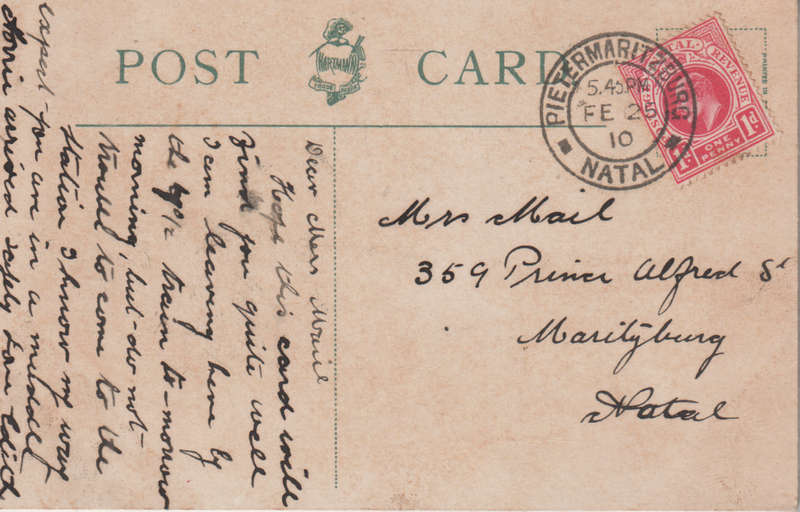 POST CARD
HARTMANN
TRADE MARK
PIETERMARITZBURG
5.45PM
FE 25
10
NATAL
NATAL REVENUE
POSTAGE
1d. 1d
ONE PENNY
PRINTED IN
Mrs Mail
359 Prince Alfred St
Maritzburg
Natal
Dear Mrs Mail
Hope this card will
find you quite well
I am leaving here by
the train to-morrow
morning, but do not
trouble to come to the
station I know my way
expect you are in a muddle
arrived safely love Edith